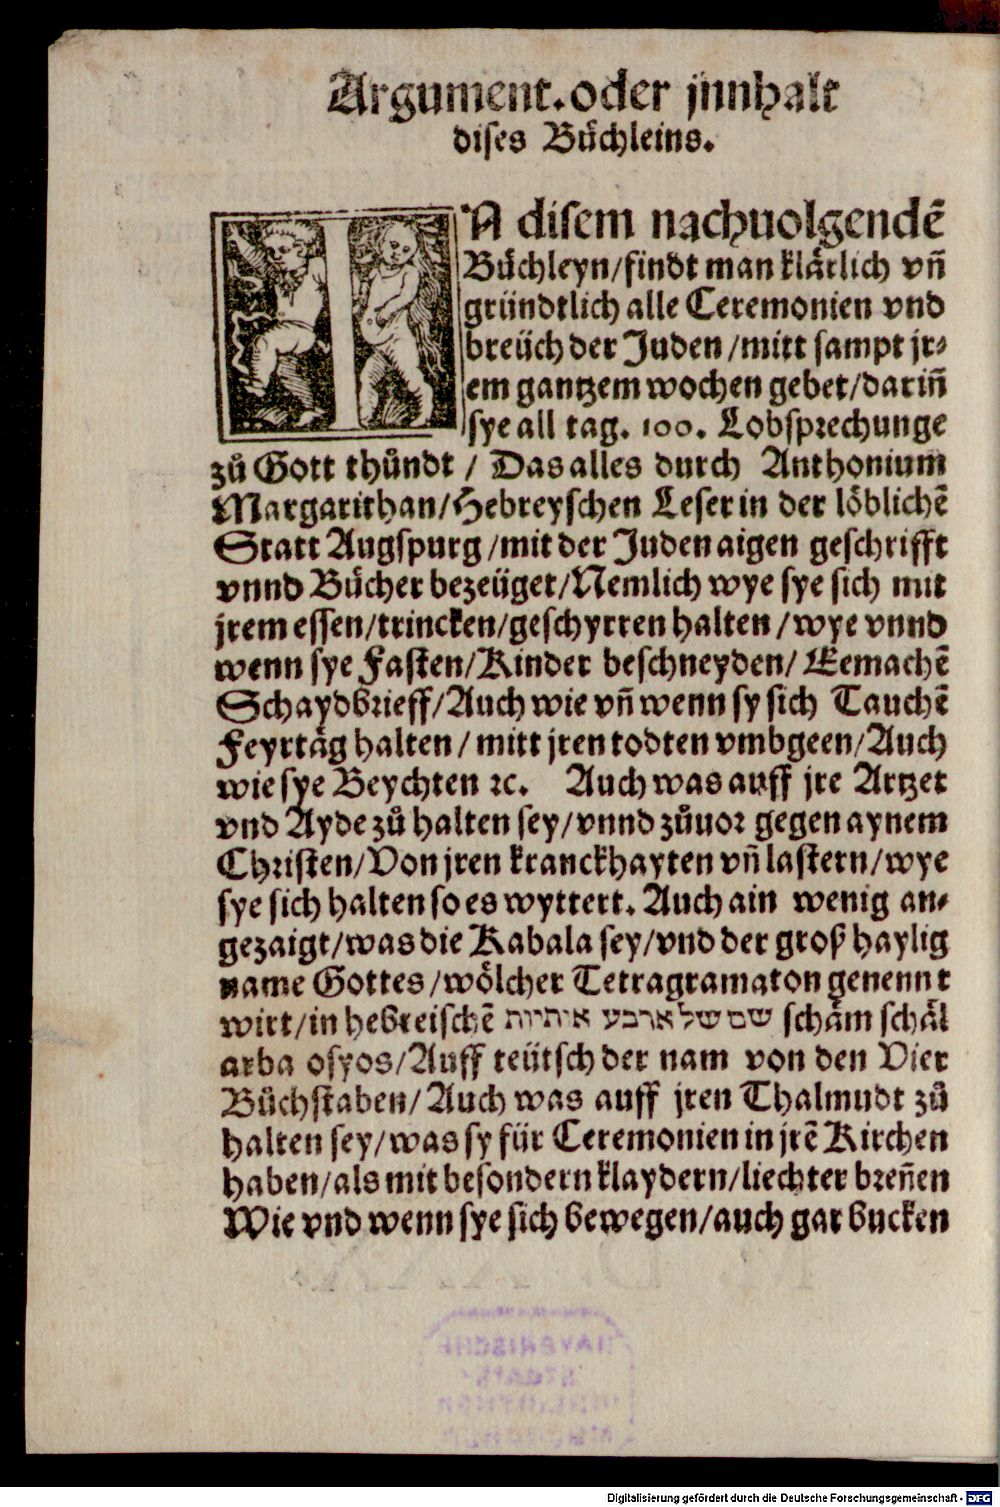 Argument. oder jnnhalt
dises Bůchleins.
IN disem nachuolgendē
Bůchleyn/findt man klärlich vñ
gründtlich alle Ceremonien vnd
breüch der Juden/mitt sampt jr⸗
em gantzem wochen gebet/dariñ
sye all tag. 100. Lobsprechunge
zů Gott thůndt / Das alles durch Anthonium
Margaritham/Hebreyschen Leser in der löblichē
Statt Augspurg/mit der Juden aigen geschrifft
vnnd Bůcher bezeüget/Nemlich wye sye sich mit
jrem essen/trincken/geschyrren halten/wye vnnd
wenn sye Fasten/Kinder beschneyden/Eemachē
Schaydbrieff/Auch wie vñ wenn sy sich Tauchē
Feyrtäg halten/mitt jren todten vmbgeen/Auch
wie sye Beychten ꝛc. Auch was auff jre Artzet
vnd Ayde zů halten sey/vnnd zůuor gegen aynem
Christen/Von jren kranckhayten vñ lastern/wye
sye sich halten so es wyttert. Auch ain wenig an⸗
gezaigt/was die Kabala sey/vnd der groß haylig
name Gottes/wölcher Tetragramaton genennt
wirt/in hebreischē שם של ארבע איתיות schäm schäl
arba osyos/Auff teütsch der nam von den Vier
Bůchstaben/Auch was auff jren Thalmudt zů
halten sey/was sy für Ceremonien in jrē Kirchen
haben/als mit besondern klaydern/liechter breñen
Wie vnd wenn sye sich bewegen/auch gar bucken
BAYERISCHE
STAATS-
BIBLIOTHEK
MÜNCHEN
Digitalisierung gefördert durch die Deutsche Forschungsgemeinschaft - DFG